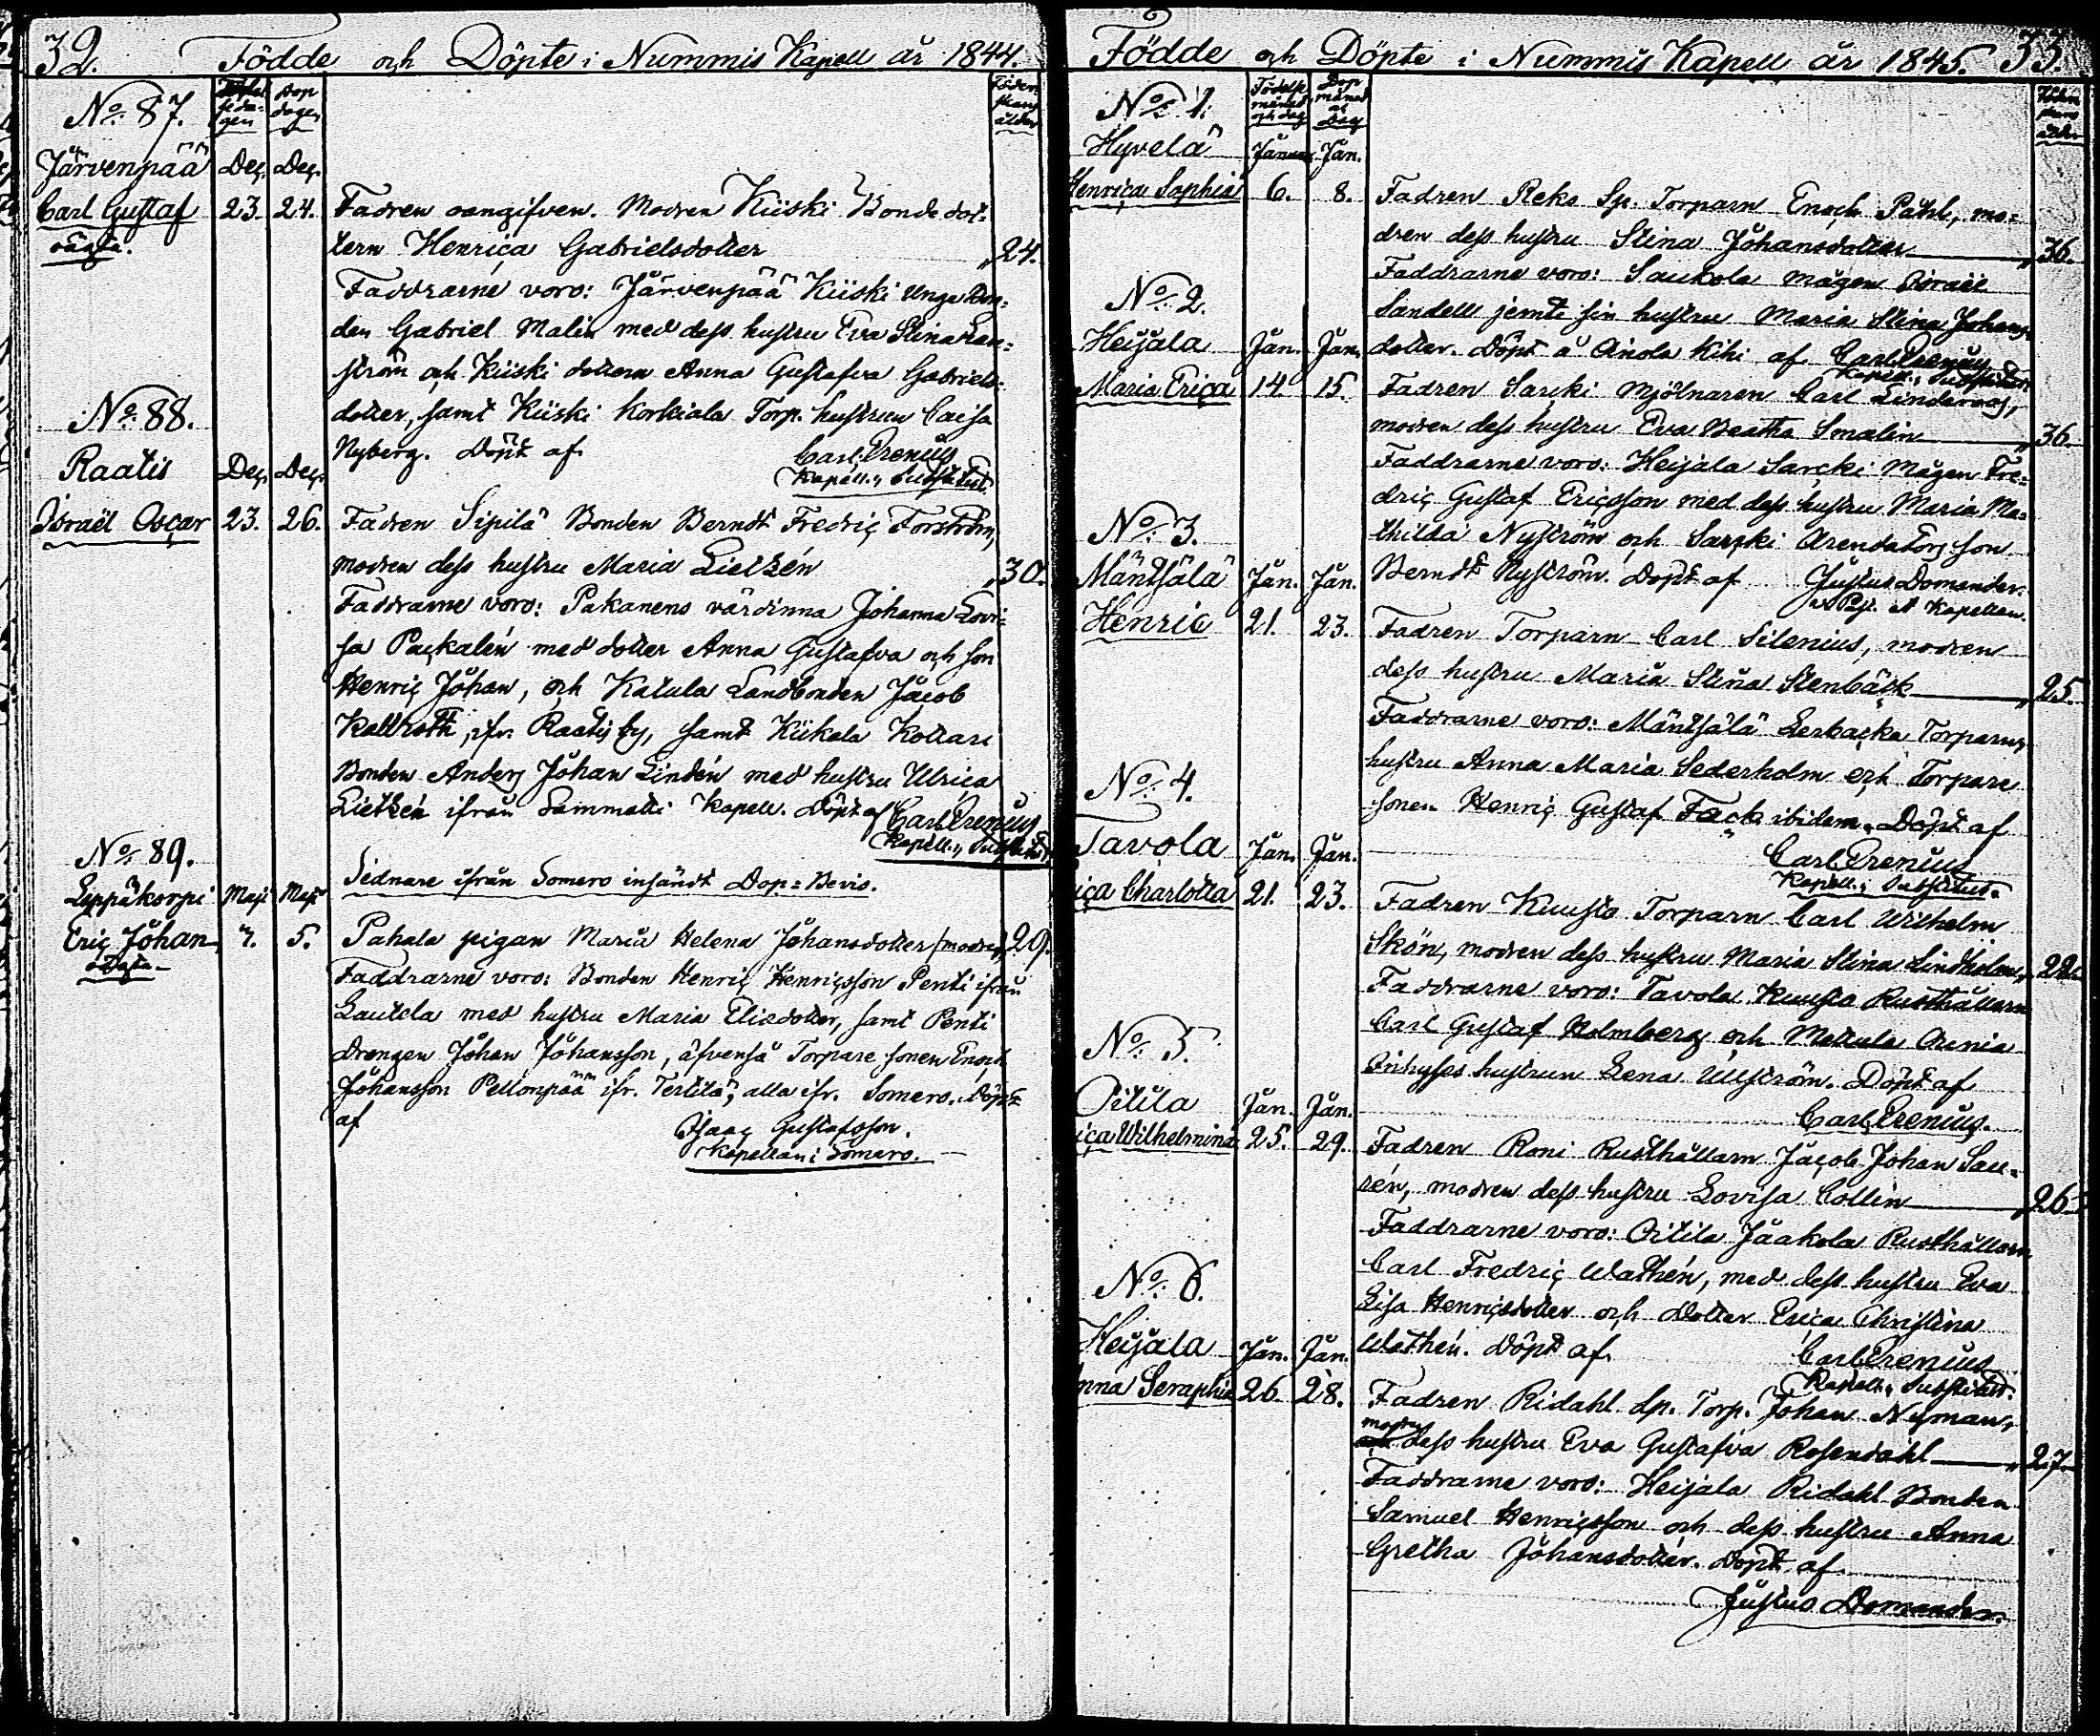 32. Födde och Döpte i Nummis Kapell år 1844.
No. 87.
Dop dagen
Föderskans ålder
Järvenpää Dec. Dec.
Carl Gustaf 23. 24. Fadren oangifven. Modren Kiiski Bonde dot-
oägta.
tern Henrica Gabrielsdotter „24.
Faddrarne voro: Järvenpää Kiiski Unga Bon-
den Gabriel Malin med dess hustru Eva Stina
ström och Kiiski dottern Anna Gustafva Gabriels-
dotter, samt Kiiski Korkiala Torp. hustrun Caisa
Nyberg. Döpt af Carl Prenius
Kapell. Substitut.
No. 88.
Raatis Dec. Dec.
Israël Oscar 23. 26. Fadren Sipilä Bonden Berndt Fredric Forström,
modren dess hustru Maria Lietzén „30.
Faddrarne voro: Pakanens värdinna Johanna Lovi-
sa Packalén med dotter Anna Gustafva och son
Henric Johan, och Katula Landbonden Jacob
Kallroth, ifr. Raatis by, samt Kiikala Kottari
Bonden Anders Johan Lindén med hustru Ulrica
Lietzén ifrån Sammatti Kapell. Döpt af Carl Prenius
Kapell. Substitut.
No. 89.
Sednare ifrån Somero insändt Dop-Bevis.
Leppäkorpi Maji Maji
Eric Johan 5. Pahala pigan Maria Helena Johansdotter (modren) „29.
oägta
Faddrarne voro: Bonden Henric Henricsson Penti ifrån
Lautela med hustru Maria Eliedotter, samt Penti
drengen Johan Johansson, äfvenså Torpare sonen Enoch
Johansson Pellonpää ifr. Terttilä, alla ifr. Somero. Döpt
af Isaac Gustafsson.
Kapellan i Somero.
Födde och Döpte i Nummis Kapell år 1845. 33.
No. 1.
Födelse månad och dag
Dop månad och Dag
Hyvelä Januar. Jan.
Henrica Sophia 6. 8. Fadren Reks Sp. Torparn Enoch Pahl, mo-
dren dess hustru Stina Johansdotter „36.
Faddrarne voro: Saukola mågen Israël
Sandell jemte sin hustru Maria Stina Johans-
dotter. Döpt å Ainola Kihi af Carl Prenius
Kapell. Substitut.
No. 2.
Heijala Jan. Jan.
Maria Erica 14. 15. Fadren Sarcki Mjölnaren Carl
modren dess hustru Eva Beatha Smalin „36.
Faddrarne voro: Heijala Sarcki Mågen Fre-
dric Gustaf Ericsson med dess hustru Maria Ma-
thilda Nyström och Sarcki Arendators son
Berndt Nyström. Döpt af Justus Domander.
Kapellan.
No. 3.
Mäntsälä Jan. Jan.
Henric 21. 23. Fadren Torparn Carl Silenius, modren
dess hustru Maria Stina Stenbäck „25.
Faddrarne voro: Mäntsälä Lerbacka Torparns
hustru Anna Maria Sederholm och Torpare
sonen Henric Gustaf Fack ibidem. Döpt af
Carl Prenius
Kapell. Substitut.
No. 4.
Tavola Jan. Jan.
ica Charlotta 21. 23. Fadren Kuusto Torparn Carl Wilhelm
Skön, modren dess hustru Maria Stina Lindholm „22.
Faddrarne voro: Tavola Kuusto Rusthållarn
Carl Gustaf Holmberg och Mettula Aunia
Inhyses hustrun Lena Ullström. Döpt af
Carl Prenius.
No. 5.
Oitila Jan. Jan.
ica Wilhelmina 25. 29. Fadren Roni Rusthållarn Jacob Johan Sau-
rén, modren dess hustru Lovisa Collin „26.
Faddrarne voro: Oitila Jaakola Rusthållarn
Carl Fredric Wathén, med dess hustru Eva
Lisa Henricsdotter och Dotter Erica Christina
Wathén. Döpt af Carl Prenius
Kapell. Substitut.
No. 6.
Heijala Jan. Jan.
nna Seraphia 26. 28. Fadren Ridahl Sp. Torp. Johan Nyman,
modren dess hustru Eva Gustafva Rosendahl „27.
Faddrarne voro: Heijala Ridahl Bonden
Samuel Henricsson och dess hustru Anna
Gretha Johansdotter. Döpt af
Justus Domander.